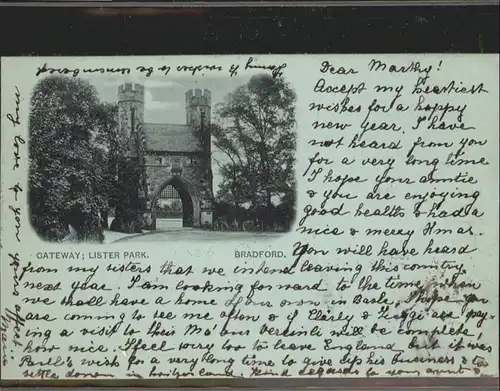 Dear Marthy!
Accept my heartiest
wishes for a happy
new year. I have
not heard from you
for a very long time
I hope your auntie
& you are enjoying
good health & had a
nice & merry Xmas.
GATEWAY; LISTER PARK. BRADFORD.
You will have heard
from my sisters that we intend leaving this country
next year. I am looking forward to the time, when
we shall have a home of our own in Basle. I hope you
are coming to see me often & if Elsely & are pay-
ing a visit to their will be complete,
how nice. I feel very too to leave England, but it was
wish for a very long time to give up his business & to
settle down in Kind regards to your aunt &
my love to you
yours affect.